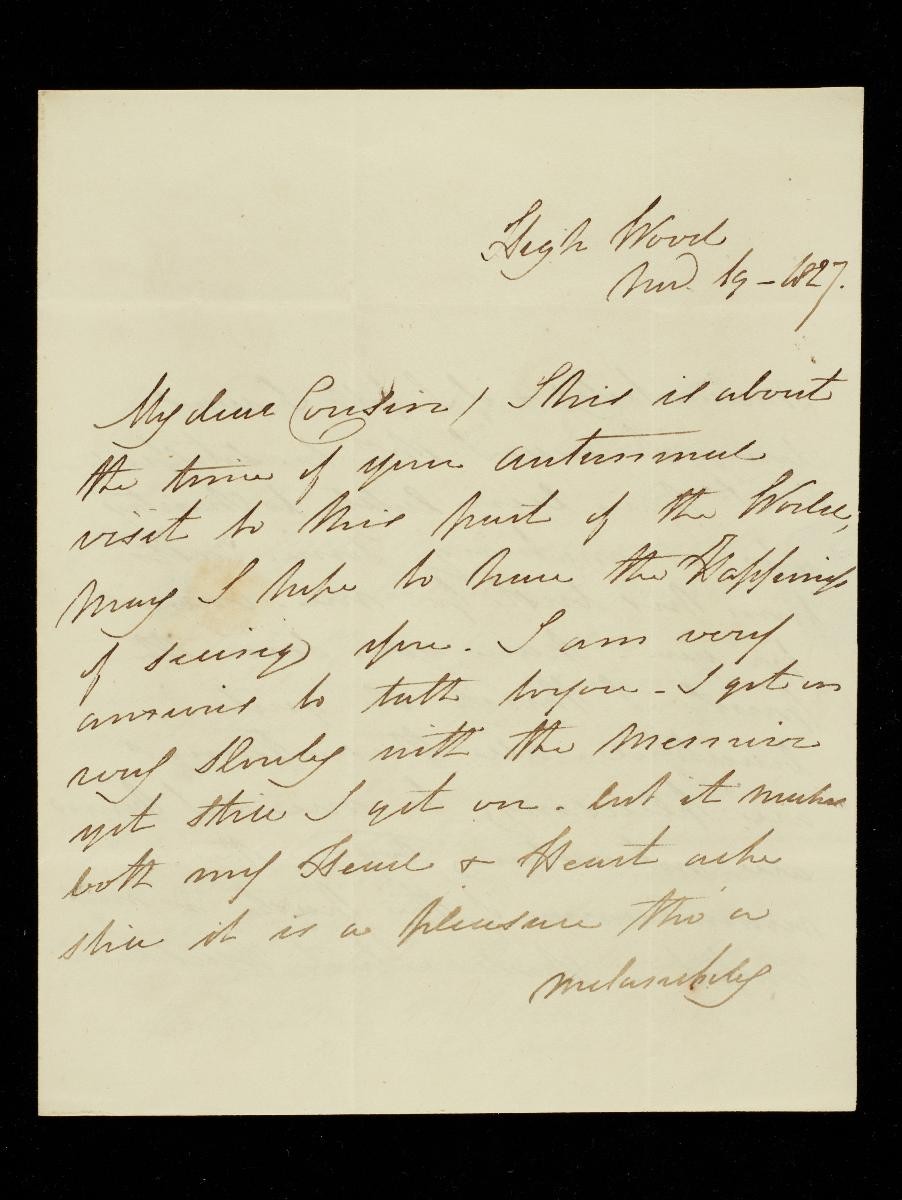 High Wood
Nov. 19 - 1827.
My dear Cousin / This is about
the time of your autumnal
visit to this part of the World,
may I hope to have the Happiness
of seeing you. I am very
anxious to talk to you - I get on
very slowly with the Memoir
yet still I get on - but it makes
both my Head & Heart ache
still it is a pleasure tho' a
melancholy